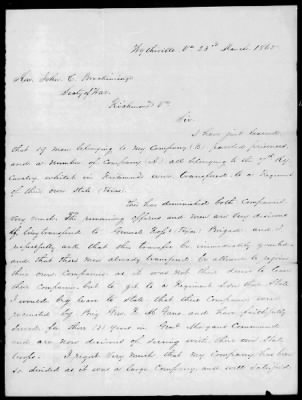 Wytheville Va 23rd March 1865
Hon. John C. Breckinridge
Secty of War.
Richmond Va.
Sir
I have just learned
that 17 men belonging to my Company (B) paroled prisoners
and a number of Company (A) all belonging to the 7th Ky
Cavalry whilst in Richmond were transferred to a Regiment
of their own State (Texas).
This has diminished both Companies
very much. The remaining officers and men are very desirous
of being transferred to General Ross' (Texas) Brigade and I
respectfully ask that this transfer be immediately granted
and that those men already transferred be allowed to rejoin
their own Companies as it was not their desire to leave
their Companies but to get to a Regiment from their State
I would beg leave to state that these Companies were
recruited by Brig Gen. R. M. Gano and have faithfully
served for three (3) years in Genl Morgans Command
and are now desirous of serving with their own State
troops. I regret very much that my Company has been
so divided as it was a large Company and well satisfied